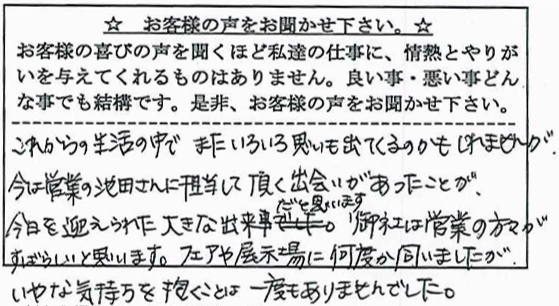 ☆ お客様の声をお聞かせ下さい。☆
お客様の喜びの声を聞くほど私達の仕事に、情熱とやりが
いを与えてくれるものはありません。良い事・悪い事どん
な事でも結構です。是非、お客様の声をお聞かせ下さい。
これからの生活の中で まだいろいろ思いも出てくるのかもしれませんが、
今は営業の池田さんに担当して頂く出会いがあったことが、
だと思います
今日を迎えられた大きな出来事でした。御社は営業の方々が
すばらしいと思います。フェアや展示場に何度か伺いましたが、
いやな気持ちを抱くことは一度もありませんでした。